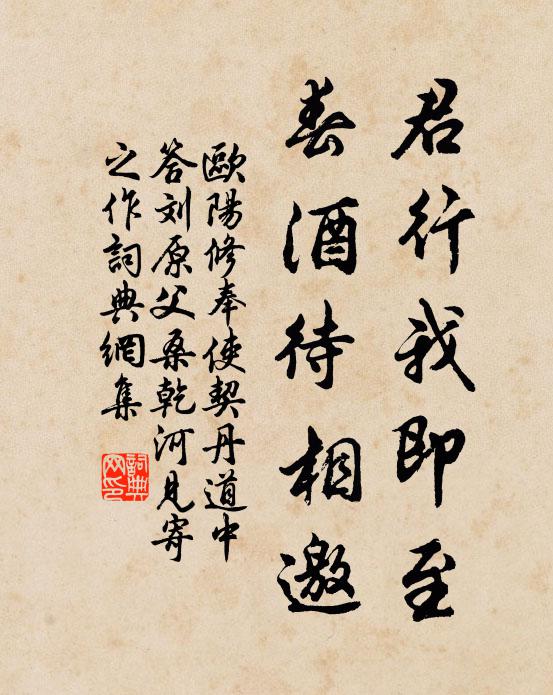 君行我即至
春酒待相邀
歐陽修奉使契丹道中
答刘原父桑乾河見寄
之作詞典網集
詞典
网印